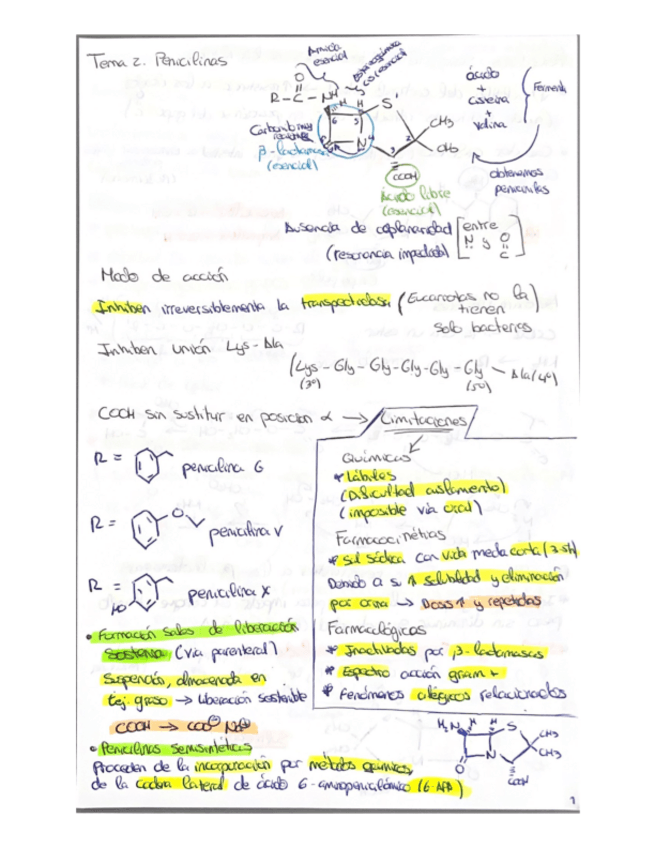 Tema 2. Penicilinas
Amida
esencial
Estereoquímica
cis esencial
R-C-NH
O
H H
S
6 5
N
2
3
CH3
CH3
COOH
β-lactama
(esencial)
Ácido libre
(esencial)
ácido
+
cisteína
+
valina
obtenemos
penicilinas
Ausencia de coplanaridad [entre
(resonancia impedida) N y O
C]
Modo de acción
Inhiben irreversiblemente la (Eucariotas no la
tienen)
Solo bacterias
Inhiben unión Lys-Ala
(Lys-Gly-Gly-Gly-Gly-Gly-Ala(4º)
(3º) (5º)
COOH sin sustituir en posición α → Limitaciones
R = penicilina G
R = O penicilina V
R = HO penicilina X
Químicas
* Lábiles
(Dificultad aislamiento)
(imposible vía oral)
Farmacocinéticas
* Sal sódica con vida media corta
Debido a su ↑ solubilidad y eliminación
por orina → Dosis ↑ y repetidas
Farmacológicas
* Inactivadas por β-lactamasas
* Espectro acción gram +
* Fenómenos alérgicos relacionados
• Formación sales de liberación
sostenida (vía parenteral)
Suspensión, almacenada en
tej. graso → liberación sostenible
COOH → COO⊖ Na⊕
• Penicilinas semisintéticas
Proceden de la incorporación por métodos químicos,
de la cadena lateral de ácido 6-aminopenicilánico (6 APA)
H2N H H S
CH3
CH3
O
N
COOH
1